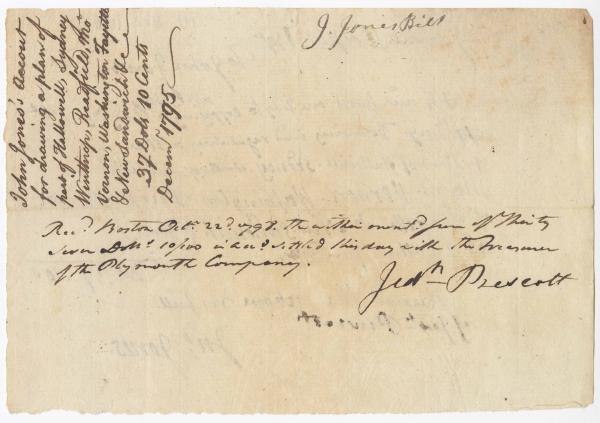 J. Jones Bill
John Jones's Account
for drawing a plan of
part of Hallowell, Sydney
Winthrop, Readfield, Mo
Vernon, Washington Fayette
& New Sandwich &c
37 Dols 10 Cents
Decemr. 1795
Recd. Boston Octr. 22d. 1798. the within mentd. sum of Thirty
Seven Dolls. 10/100 in accot. settled this day with the Treasurer
of the Plymouth Company.
Jedh. Prescott